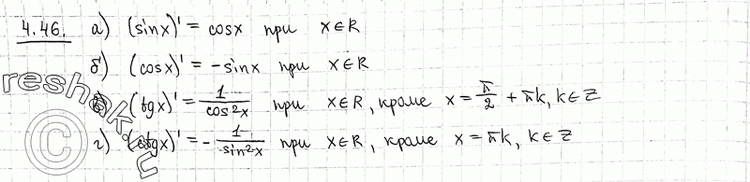 4.46. а) (sinx)' = cosx при x∈R
б) (cosx)' = -sinx при x∈R
в) (tgx)' = 1/cos²x при x∈R, кроме x = π/2 + πk, k∈Z
г) (ctgx)' = - 1/sin²x при x∈R, кроме x = πk, k∈Z
reshak.
©